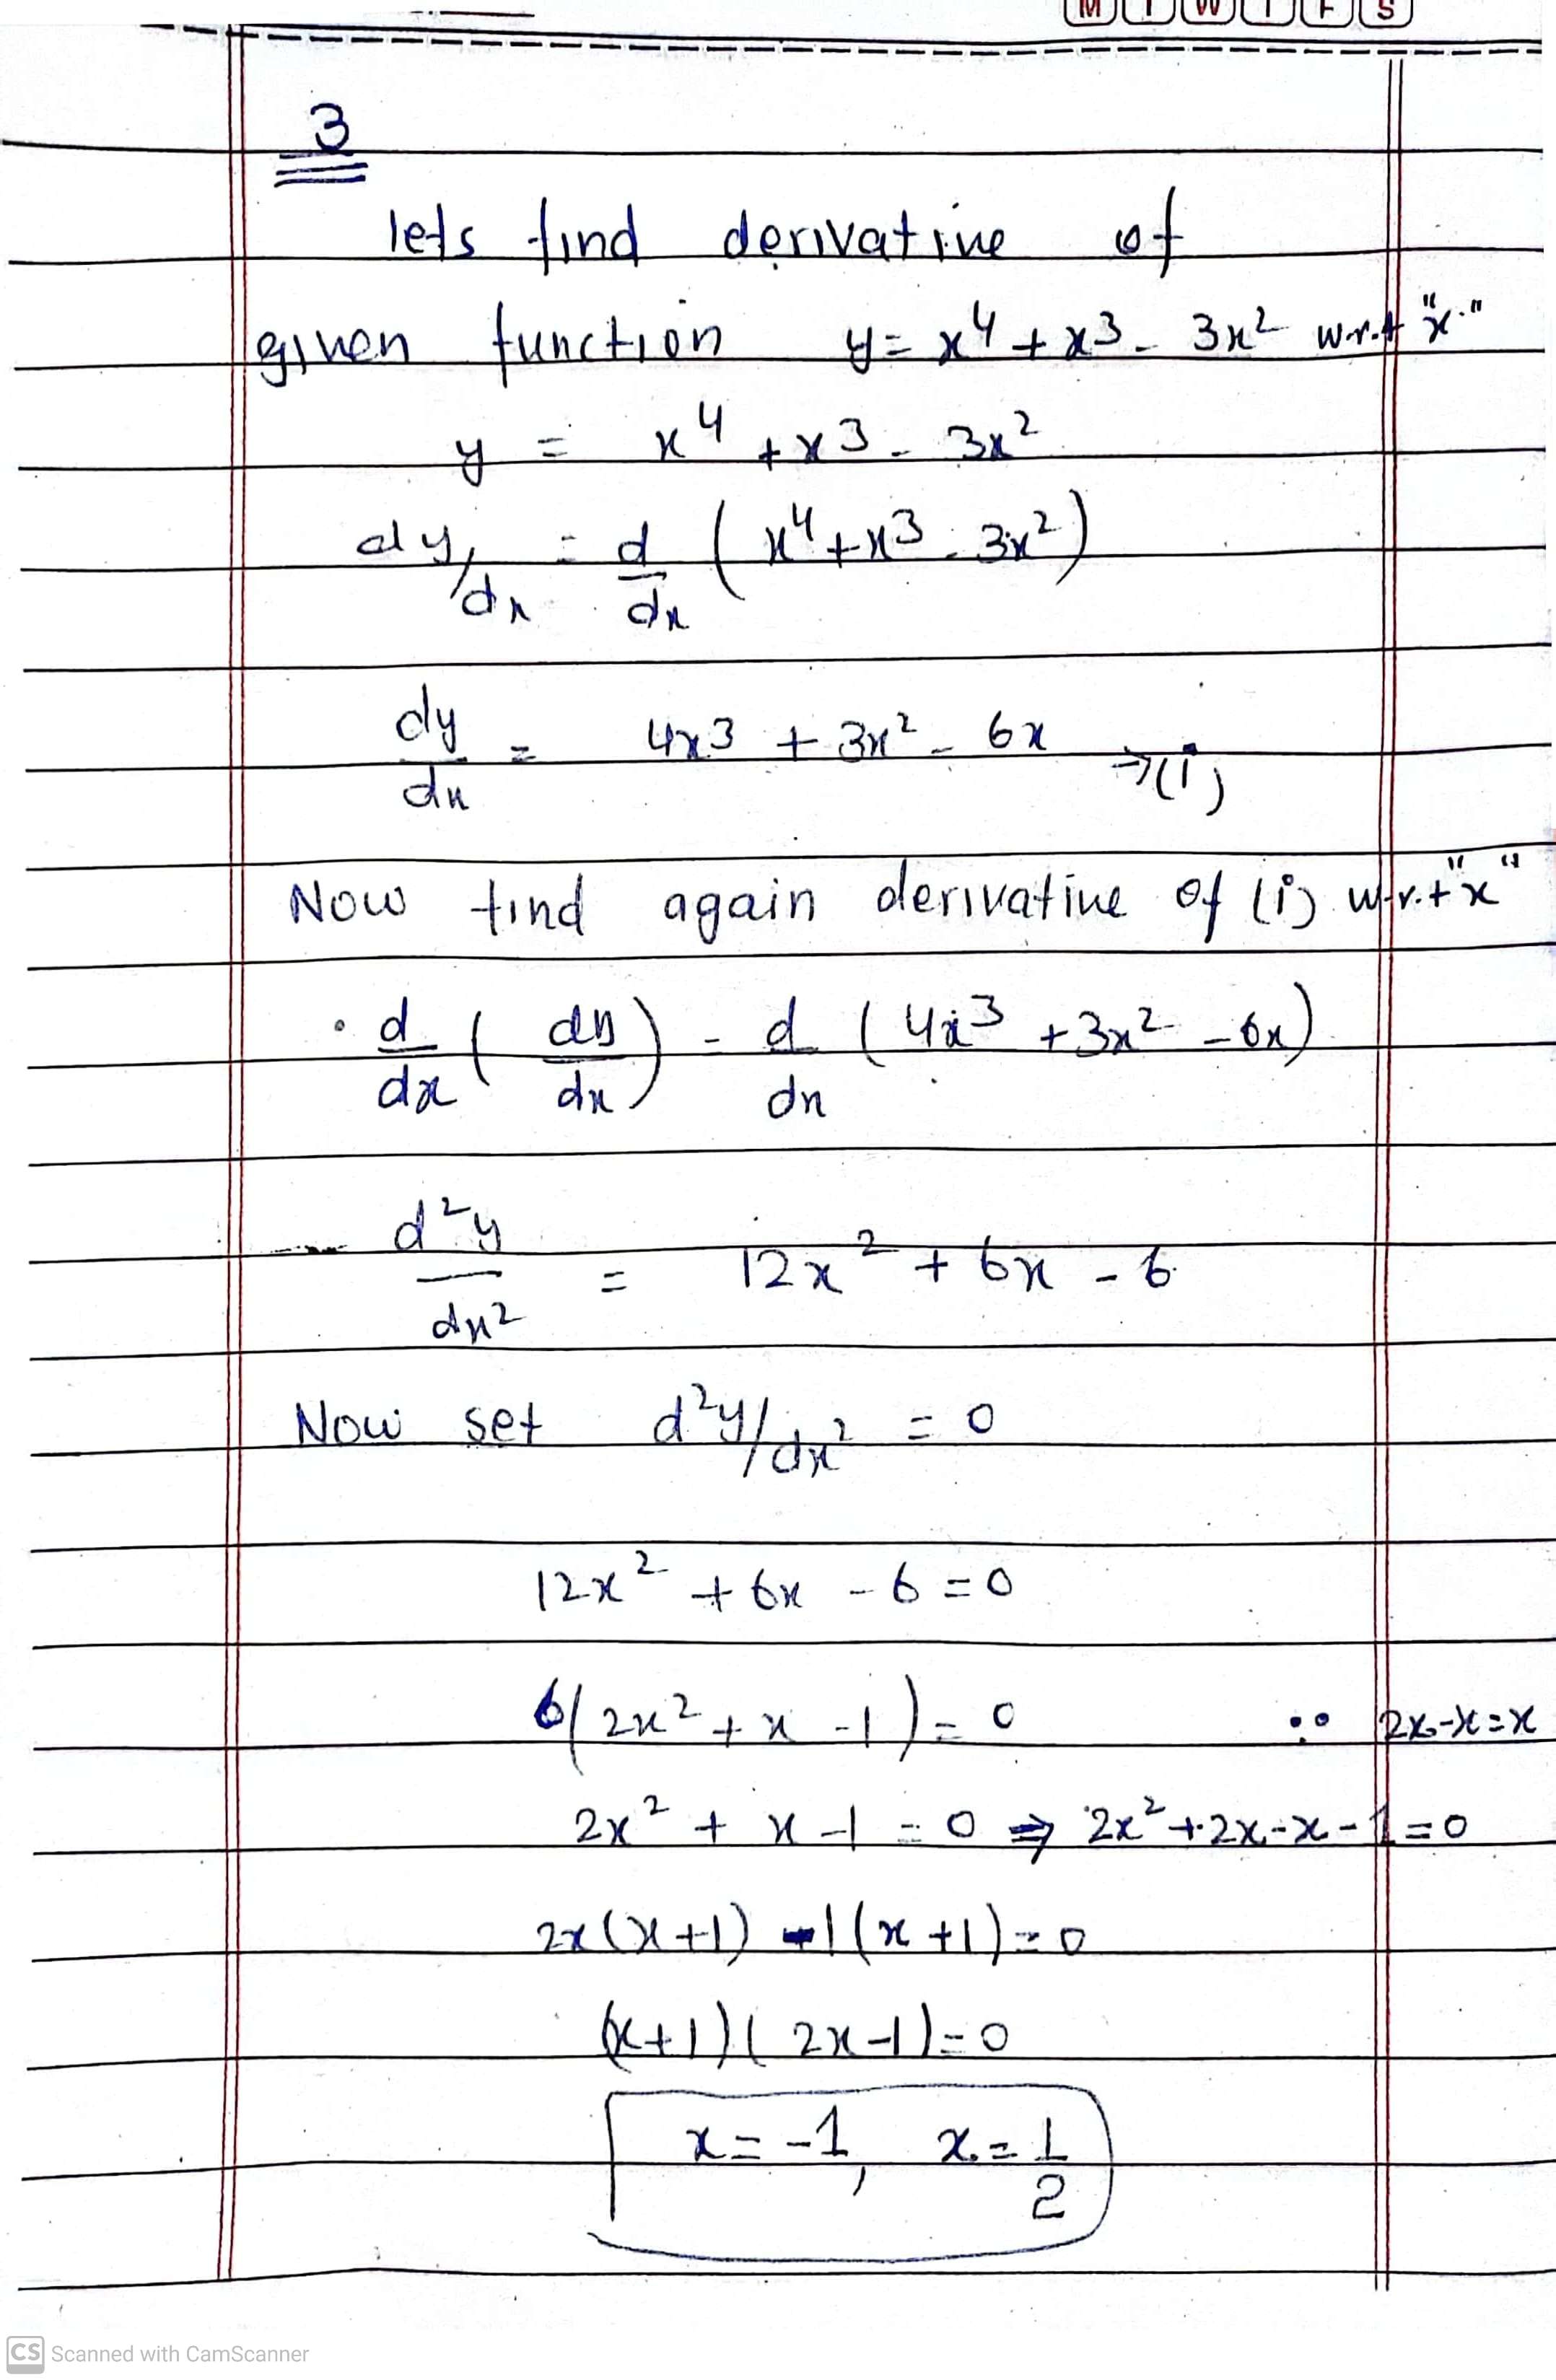 M T W T F S
3
lets find derivative of
given function y = x⁴ + x³ - 3x² w.r.t "x."
y = x⁴ + x³ - 3x²
dy/dx = d/dx (x⁴ + x³ - 3x²)
dy/dx = 4x³ + 3x² - 6x →(i)
Now find again derivative of (i) w.r.t "x"
d/dx (dy/dx) = d/dx (4x³ + 3x² - 6x)
d²y/dx² = 12x² + 6x - 6
Now set d²y/dx² = 0
12x² + 6x - 6 = 0
6(2x² + x - 1) = 0 ∵ 2x-x=x
2x² + x - 1 = 0 ⇒ 2x² + 2x - x - 1 = 0
2x(x+1) - 1(x+1) = 0
(x+1)(2x-1) = 0
x = -1, x = 1/2
CS Scanned with CamScanner